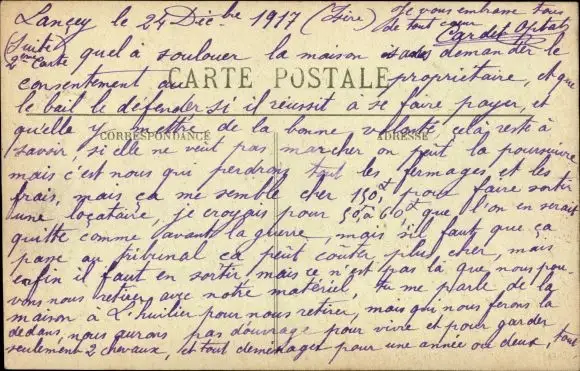 Lançey le 24 Déc.bre 1917 (Isère) Je vous embrasse tous
de tout cœur
Cardet Optat
(Suite
2ème Carte quel a soulouer la maison sans demander le
consentement au propriétaire, et que
CARTE POSTALE
le bail le défender si il réussit a se faire payer, et
qu'elle y mette de la bonne volonté, cela reste à
CORRESPONDANCE ADRESSE
savoir, si elle ne veut pas marcher on peut la poursuivre
mais c'est nous qui perdrons tout les fermages, et les
frais, mais ça me semble cher 150f pour faire sortir
une loçataire, je croyais pour 50 à 60f que l'on en serait
quitte comme avant la guerre, mais s'il faut que ça
passe au tribunal ça peut coûter plus cher, mais
enfin il faut en sortir mais ce n'est pas là que nous pou-
vons nous retirer avec notre matériel, tu me parle de la
maison à L'huilier pour nous retirer, mais qui nous ferons là
dedans, nous aurons pas d'ouvrage pour vivre et pour garder
seulement 2 chevaux, et tout demenager pour une année ou deux, tout